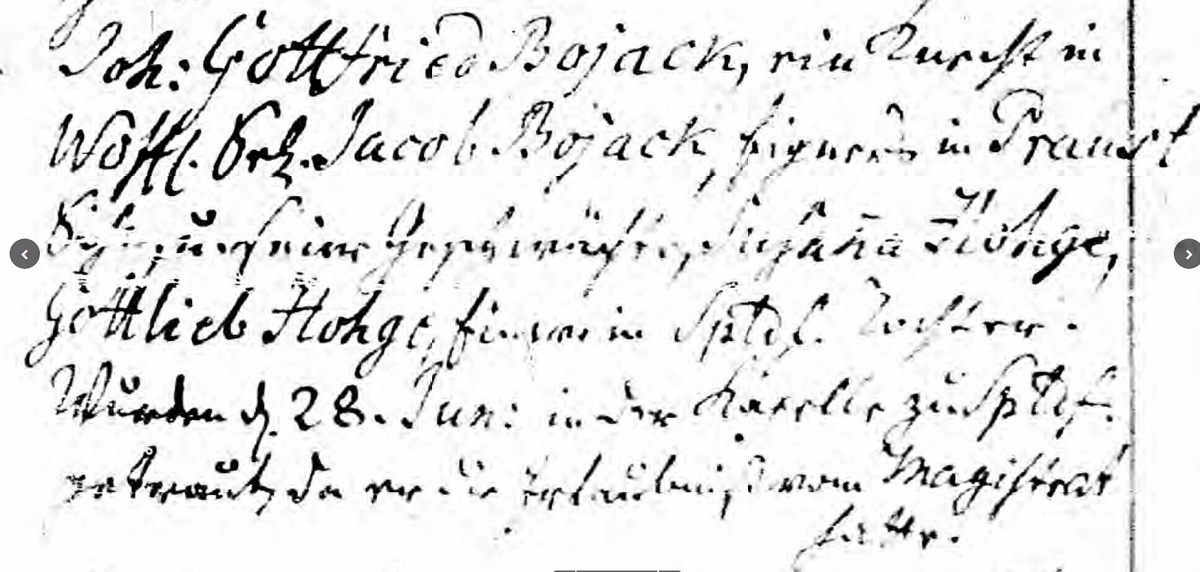 Joh: Gottfried Bojack, ein Knecht in
Woßl. Jacob Bojack, Eigners in Praust
Sohn, u. seine Geschwächte, Susaña Hohge,
Gottlieb Hohge, Einwohn in Sptdf. Tochter.
Wurden d. 28. Jun: in der Kapelle zu Sptdf.
getraut, da er die Erlaubniß vom Magistrat
hatte.